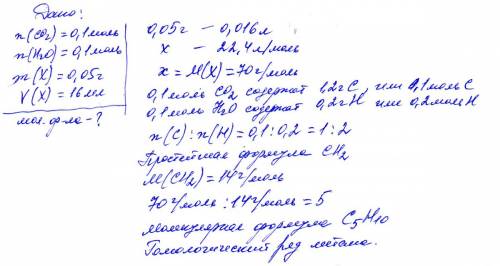 Дано:
n(CO2)=0,1моль
n(H2O)=0,1моль
m(X)=0,05г
V(X)=16мл
мол. ф-ла-?
0,05г – 0,016л
x – 22,4л/моль
x = M(X)=70г/моль
0,1моль CO2 содержат 1,2гC, или 0,1мольC
0,1моль H2O содержат 0,2гH или 0,2мольH
n(C):n(H)=0,1:0,2=1:2
Простейшая формула CH2
M(CH2)=14г/моль
70г/моль:14г/моль=5
Молекулярная формула C5H10
Гомологический ряд метана.